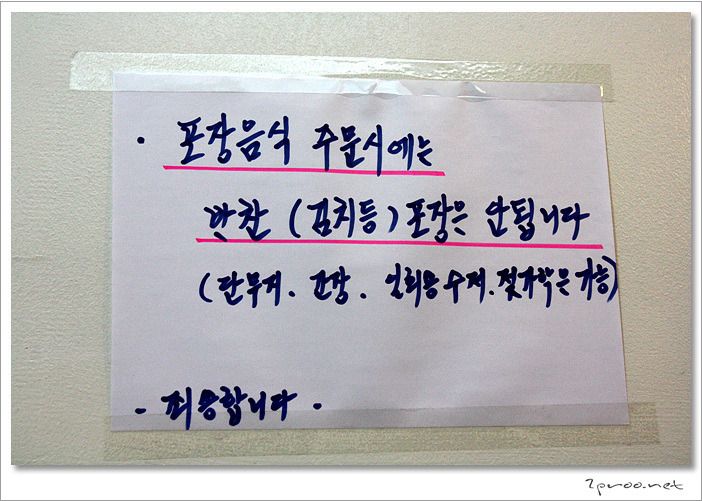 · 포장음식 주문시에는
반찬 (김치등) 포장은 안됩니다
(단무지. 간장. 일회용수저.젓가락은 가능)
- 죄송합니다 .
2proo.net